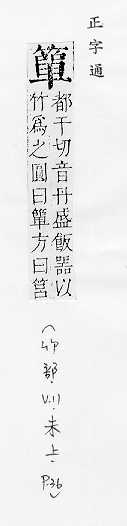 正字通
簞
都干切音丹盛飯器以
竹爲之圓曰簞方曰笥
(竹部.V.11.未上.P.36)